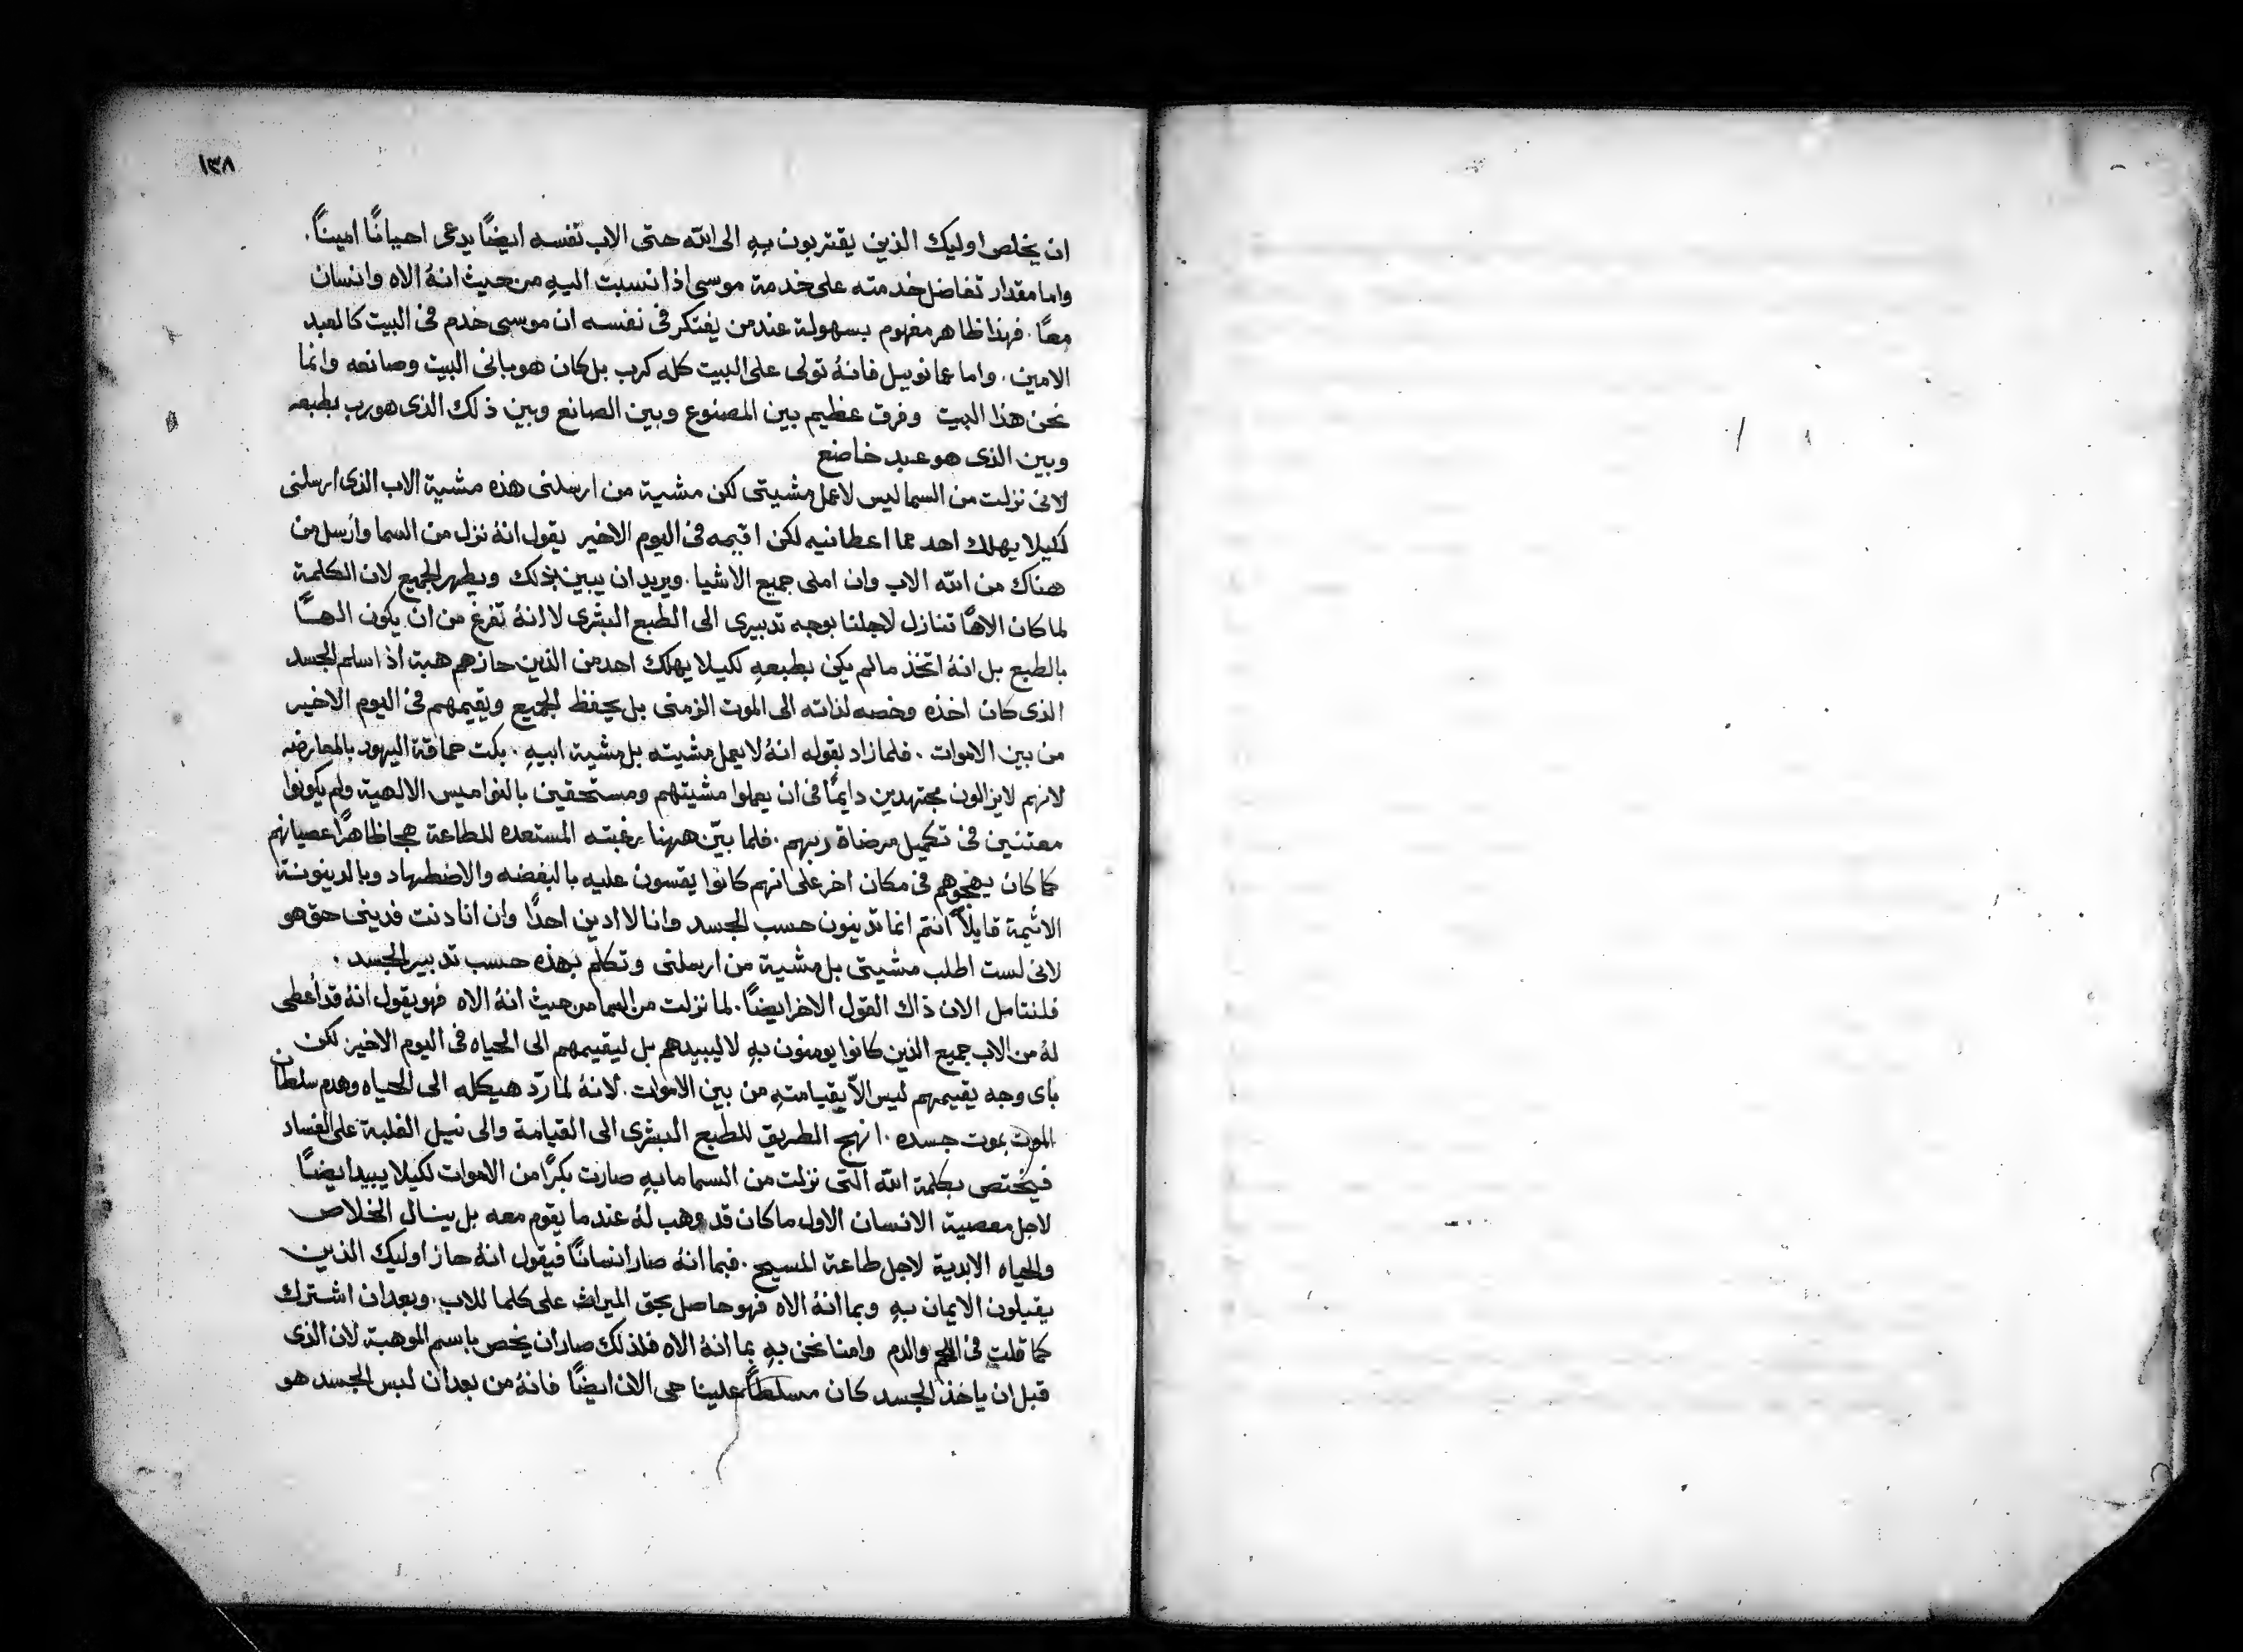 ١٣٨
ان يخلص اوليك الذين يقتربون بهِ الى الله حتى الاب نفسه ايضًا يدعى احيانًا امينًا.
واما مقدار تفاضل خدمته على خدمة موسى اذا نسبت اليهِ من حيث انهُ الاه وانسان
معًا. فهذا ظاهر مفهوم بسهولة عند من يفتكر فى نفسه ان موسى خدم فى البيت كالعبد
الامين. واما عمانوييل فانهُ تولى على البيت كله كرب بل كان هو بانى البيت وصانعه وانما
نحن هذا البيت وفرق عظيم بين المصنوع وبين الصانع وبين ذلك الذى هو رب بطبعه
وبين الذى هو عبد خاضع
لانى نزلت من السما ليس لاعمل مشيتى لكن مشية من ارسلنى هذه مشية الاب الذى ارسلنى
لكيلا يهلك احد مما اعطانيه لكن اقيمه فى اليوم الاخير يقول انهُ نزل من السما وأرسل من
هناك من الله الاب وان املى جميع الاشيا. ويريد ان يبين بذلك ويظهر للجميع لان الكلمة
لما كان الاهًا تنازل لاجلنا بوجه تدبيرى الى الطبع البشرى لا انهُ تفرغ من ان يكون الهـًا
بالطبع بل انهُ اتخذ ما لم يكن بطبعهِ لكيلا يهلك احد من الذين حازهم هبة اذ اسلم الجسد
الذى كان اخذه وخصه لذاته الى الموت الزمنى بل يحفظ الجميع ويقيمهم فى اليوم الاخير
من بين الاموات. فلما زاد بقوله انهُ لا يعمل مشيته بل مشية ابيهِ. بكت حماقة اليهود بالمعارضه
لانهم لا يزالون مجتهدين دايمًا فى ان يعملوا مشيتهم ومستحقين بالنواميس الالهية ولم يكونوا
معتنين فى تكميل مرضاة ربهم. فلما بيّن ههنا رغبته المستعده للطاعة هجا ظاهرًا عصيانهم
كما كان يهجوهم فى مكان اخر على انهم كانوا يقسون عليه بالبغضه والاضطهاد وبالدينونة
الاثيمة قايلاً انتم انما تدينون حسب الجسد وانا لا ادين احدًا وان انا دنت فدينى حق هو
لانى لست اطلب مشيتى بل مشية من ارسلنى وتكلم بهذه حسب تدبير الجسد.
فلنتامل الان ذاك القول الاخر ايضًا. لما نزلت من السما من حيث انهُ الاه فهو يقول انهُ قد أعطى
لهُ من الاب جميع الذين كانوا يومنون بهِ لا ليبيدهم بل ليقيمهم الى الحياه فى اليوم الاخير لكن
باى وجه يقيمهم ليس الاّ بقيامتهِ من بين الاموات. لانهُ لما ردّ هيكله الى الحياه وهدم سلطان
الموت بموت جسده. انهج الطريق للطبع البشرى الى القيامة والى نيل الغلبة على الفساد
فيختص بكلمة الله التى نزلت من السما ما بهِ صارت بكرًا من الاموات لكيلا يبيد ايضًا
لاجل معصية الانسان الاول ما كان قد وهب لهُ عندما يقوم معه بل ينال الخلاص
والحياه الابدية لاجل طاعة المسيح. فبما انهُ صار انسانًا فيقول انهُ حاز اوليك الذين
يقبلون الايمان بهِ وبما انهُ الاه فهو حاصل بحق الميراث على كلما للاب. وبعد ان اشترك
كما قلت فى اللحم والدم وامنا نحن بهِ بما انهُ الاه فلذلك صار ان يخص باسم الموهبة لان الذى
قبل ان ياخذ الجسد كان مسلطًا علينا حى الان ايضًا فانهُ من بعد ان لبس الجسد هو